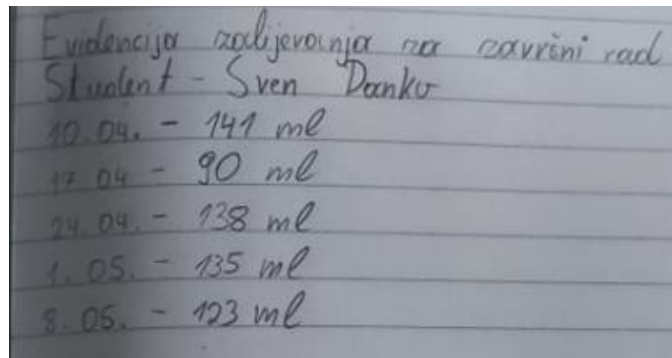 Evidencija zalijevanja za završni rad
Student - Sven Danko
10.04. - 141 ml
17.04 - 90 ml
24.04. - 138 ml
1.05. - 135 ml
8.05. - 123 ml